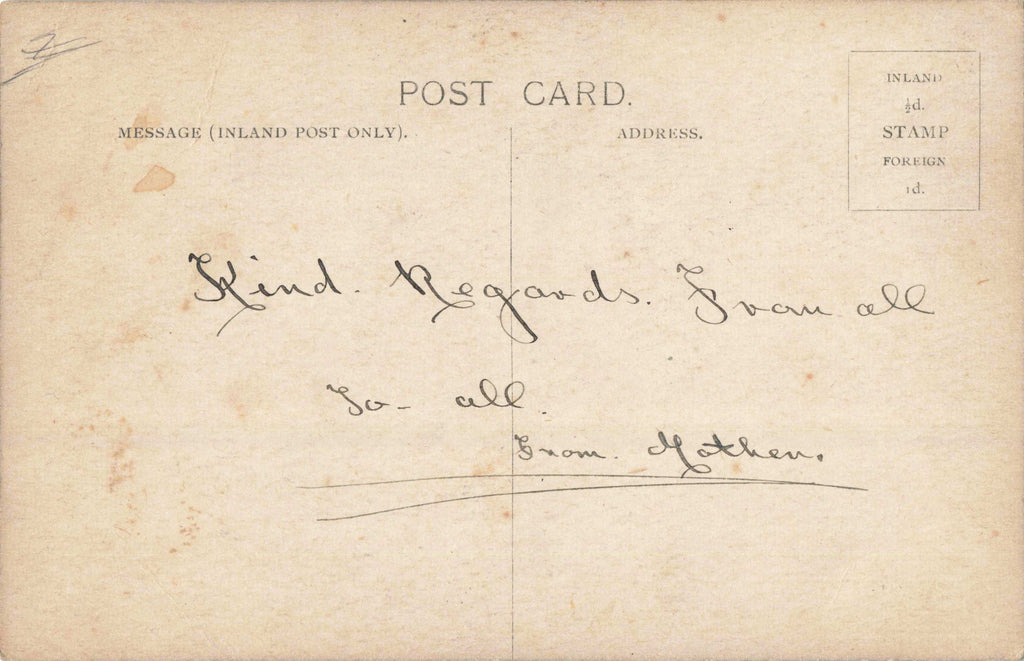 POST CARD.
MESSAGE (INLAND POST ONLY).
ADDRESS.
INLAND
½d.
STAMP
FOREIGN
1d.
Kind. Regards. From all
To - all.
From. Mother.